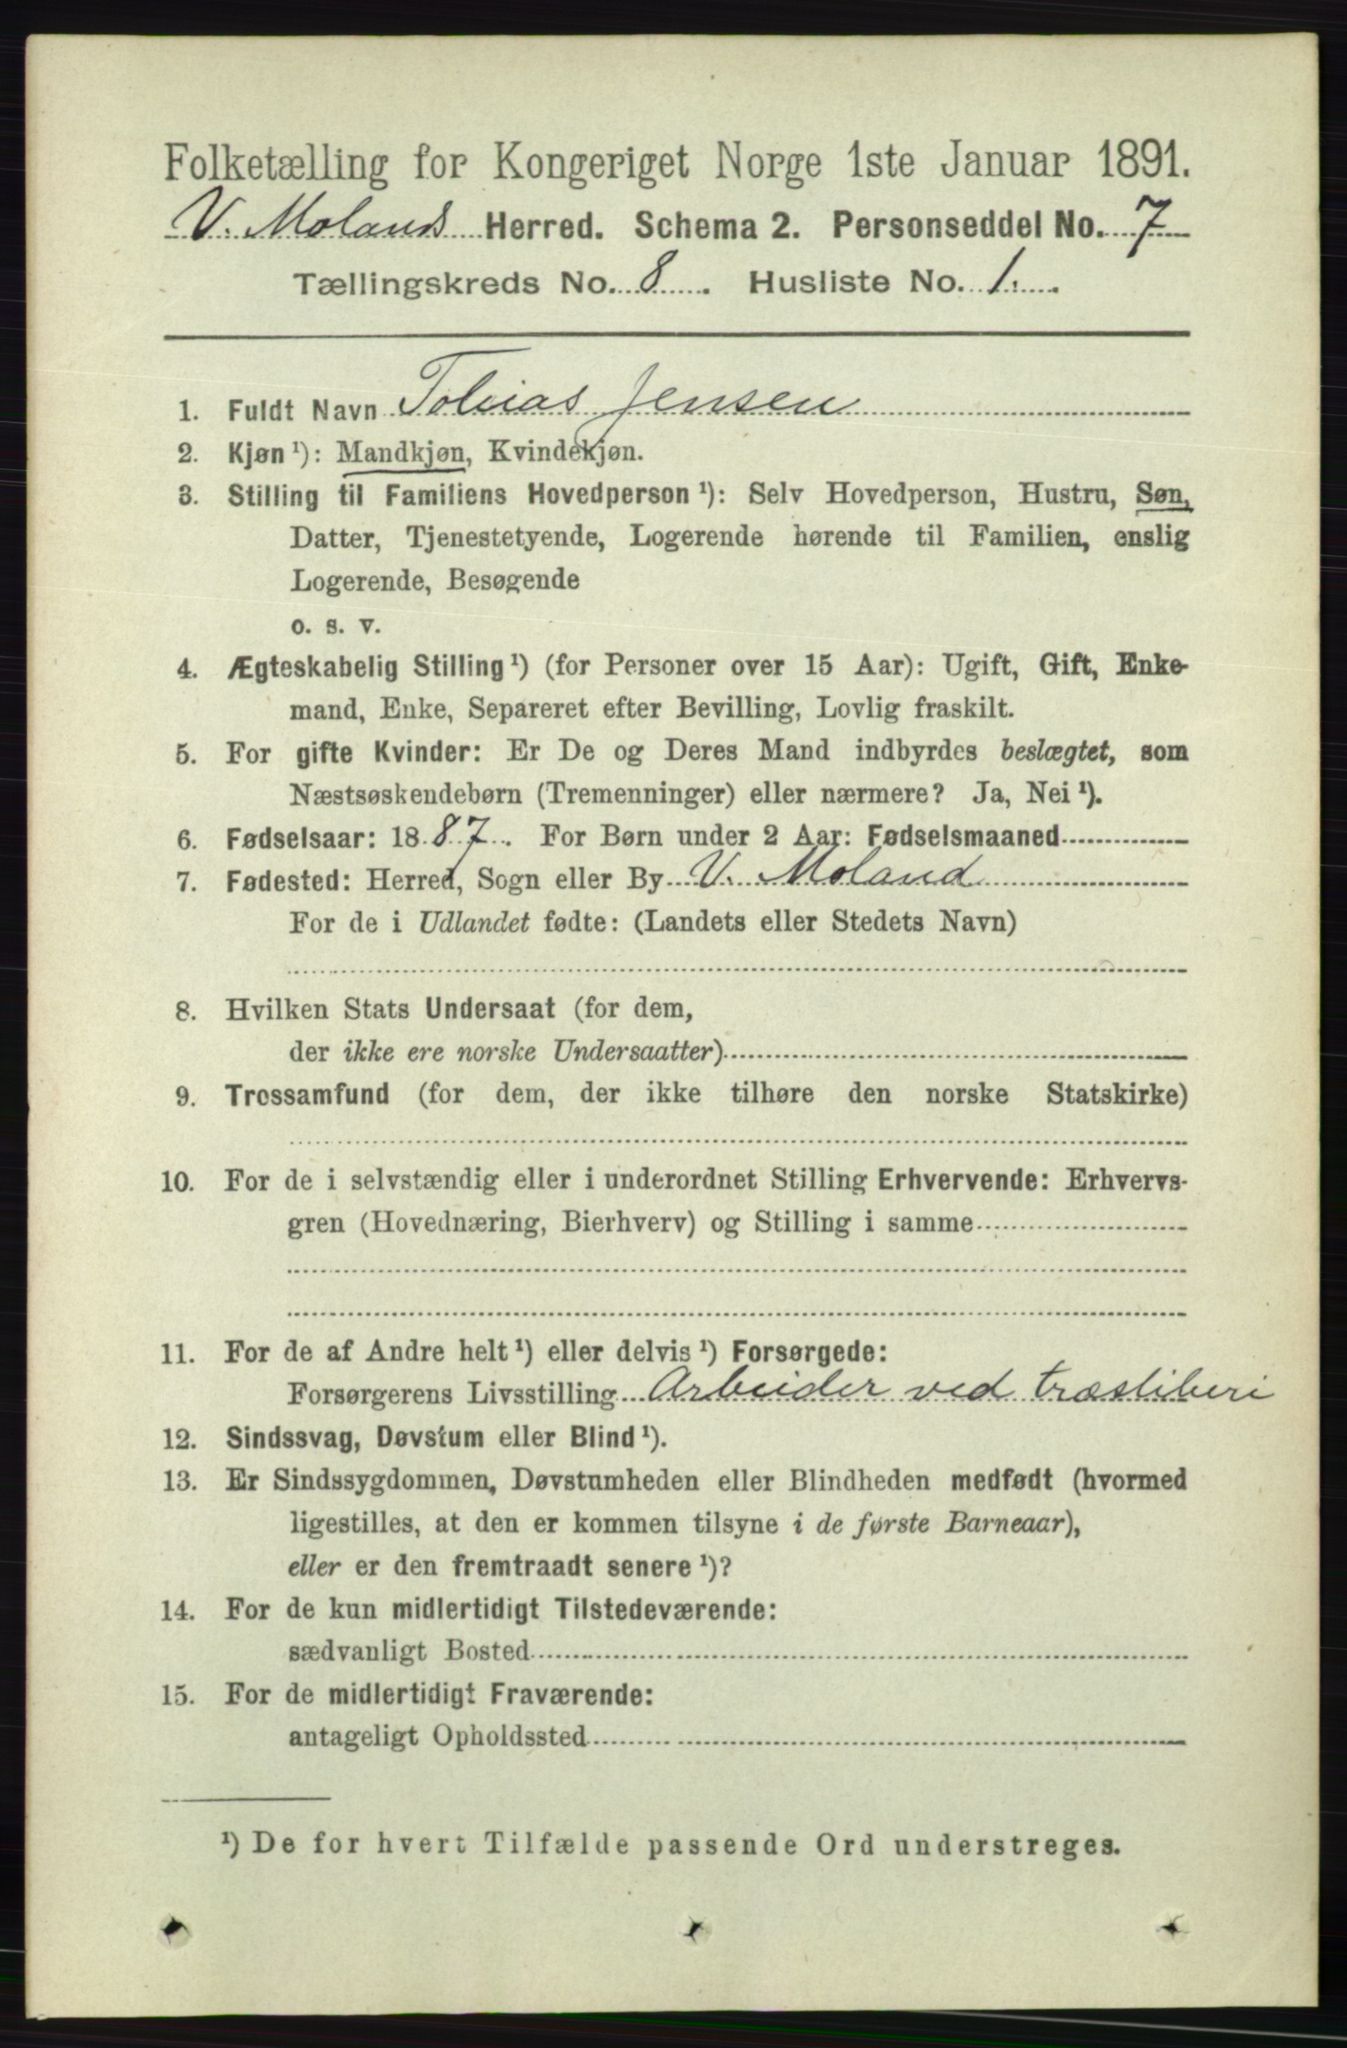 Folketælling for Kongeriget Norge 1ste Januar 1891.
V. Molands Herred. Schema 2. Personseddel No. 7
Tællingskreds No. 8. Husliste No. 1.
1. Fuldt Navn Tobias Jensen
2. Kjøn ¹): Mandkjøn, Kvindekjøn.
3. Stilling til Familiens Hovedperson ¹): Selv Hovedperson, Hustru, Søn,
Datter, Tjenestetyende, Logerende hørende til Familien, enslig
Logerende, Besøgende
o. s. v.
4. Ægteskabelig Stilling ¹) (for Personer over 15 Aar): Ugift, Gift, Enke-
mand, Enke, Separeret efter Bevilling, Lovlig fraskilt.
5. For gifte Kvinder: Er De og Deres Mand indbyrdes beslægtet, som
Næstsøskendebørn (Tremenninger) eller nærmere? Ja, Nei ¹).
6. Fødselsaar: 1887. For Børn under 2 Aar: Fødselsmaaned
7. Fødested: Herred, Sogn eller By V. Moland
For de i Udlandet fødte: (Landets eller Stedets Navn)
8. Hvilken Stats Undersaat (for dem,
der ikke ere norske Undersaatter)
9. Trossamfund (for dem, der ikke tilhøre den norske Statskirke)
10. For de i selvstændig eller i underordnet Stilling Erhvervende: Erhvervs-
gren (Hovednæring, Bierhverv) og Stilling i samme
11. For de af Andre helt ¹) eller delvis ¹) Forsørgede:
Forsørgerens Livsstilling Arbeider ved træsliberi
12. Sindssvag, Døvstum eller Blind ¹).
13. Er Sindssygdommen, Døvstumheden eller Blindheden medfødt (hvormed
ligestilles, at den er kommen tilsyne i de første Barneaar),
eller er den fremtraadt senere ¹)?
14. For de kun midlertidigt Tilstedeværende:
sædvanligt Bosted
15. For de midlertidigt Fraværende:
antageligt Opholdssted
¹) De for hvert Tilfælde passende Ord understreges.